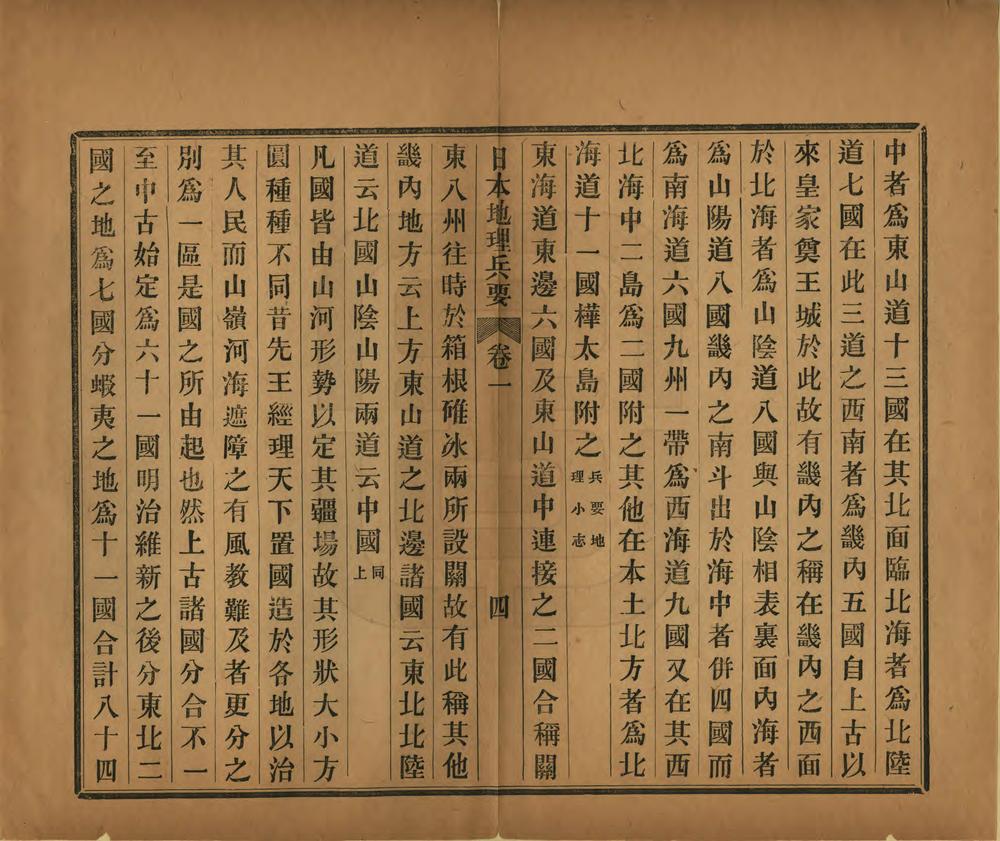 中者爲東山道十三國在其北面臨北海者爲北陸
道七國在此三道之西南者爲畿內五國自上古以
來皇家奠王城於此故有畿內之稱在畿內之西面
於北海者爲山陰道八國與山陰相表裏面內海者
爲山陽道八國畿內之南斗出於海中者併四國而
爲南海道六國九州一帶爲西海道九國又在其西
北海中二島爲二國附之其他在本土北方者爲北
海道十一國樺太島附之兵要地理小志
東海道東邊六國及東山道中連接之二國合稱關
日本地理兵要 卷一 四
東八州往時於箱根碓冰兩所設關故有此稱其他
畿內地方云上方東山道之北邊諸國云東北北陸
道云北國山陰山陽兩道云中國同上
凡國皆由山河形勢以定其疆場故其形狀大小方
圓種種不同昔先王經理天下置國造於各地以治
其人民而山嶺河海遮障之有風教難及者更分之
別爲一區是國之所由起也然上古諸國分合不一
至中古始定爲六十一國明治維新之後分東北二
國之地爲七國分蝦夷之地爲十一國合計八十四